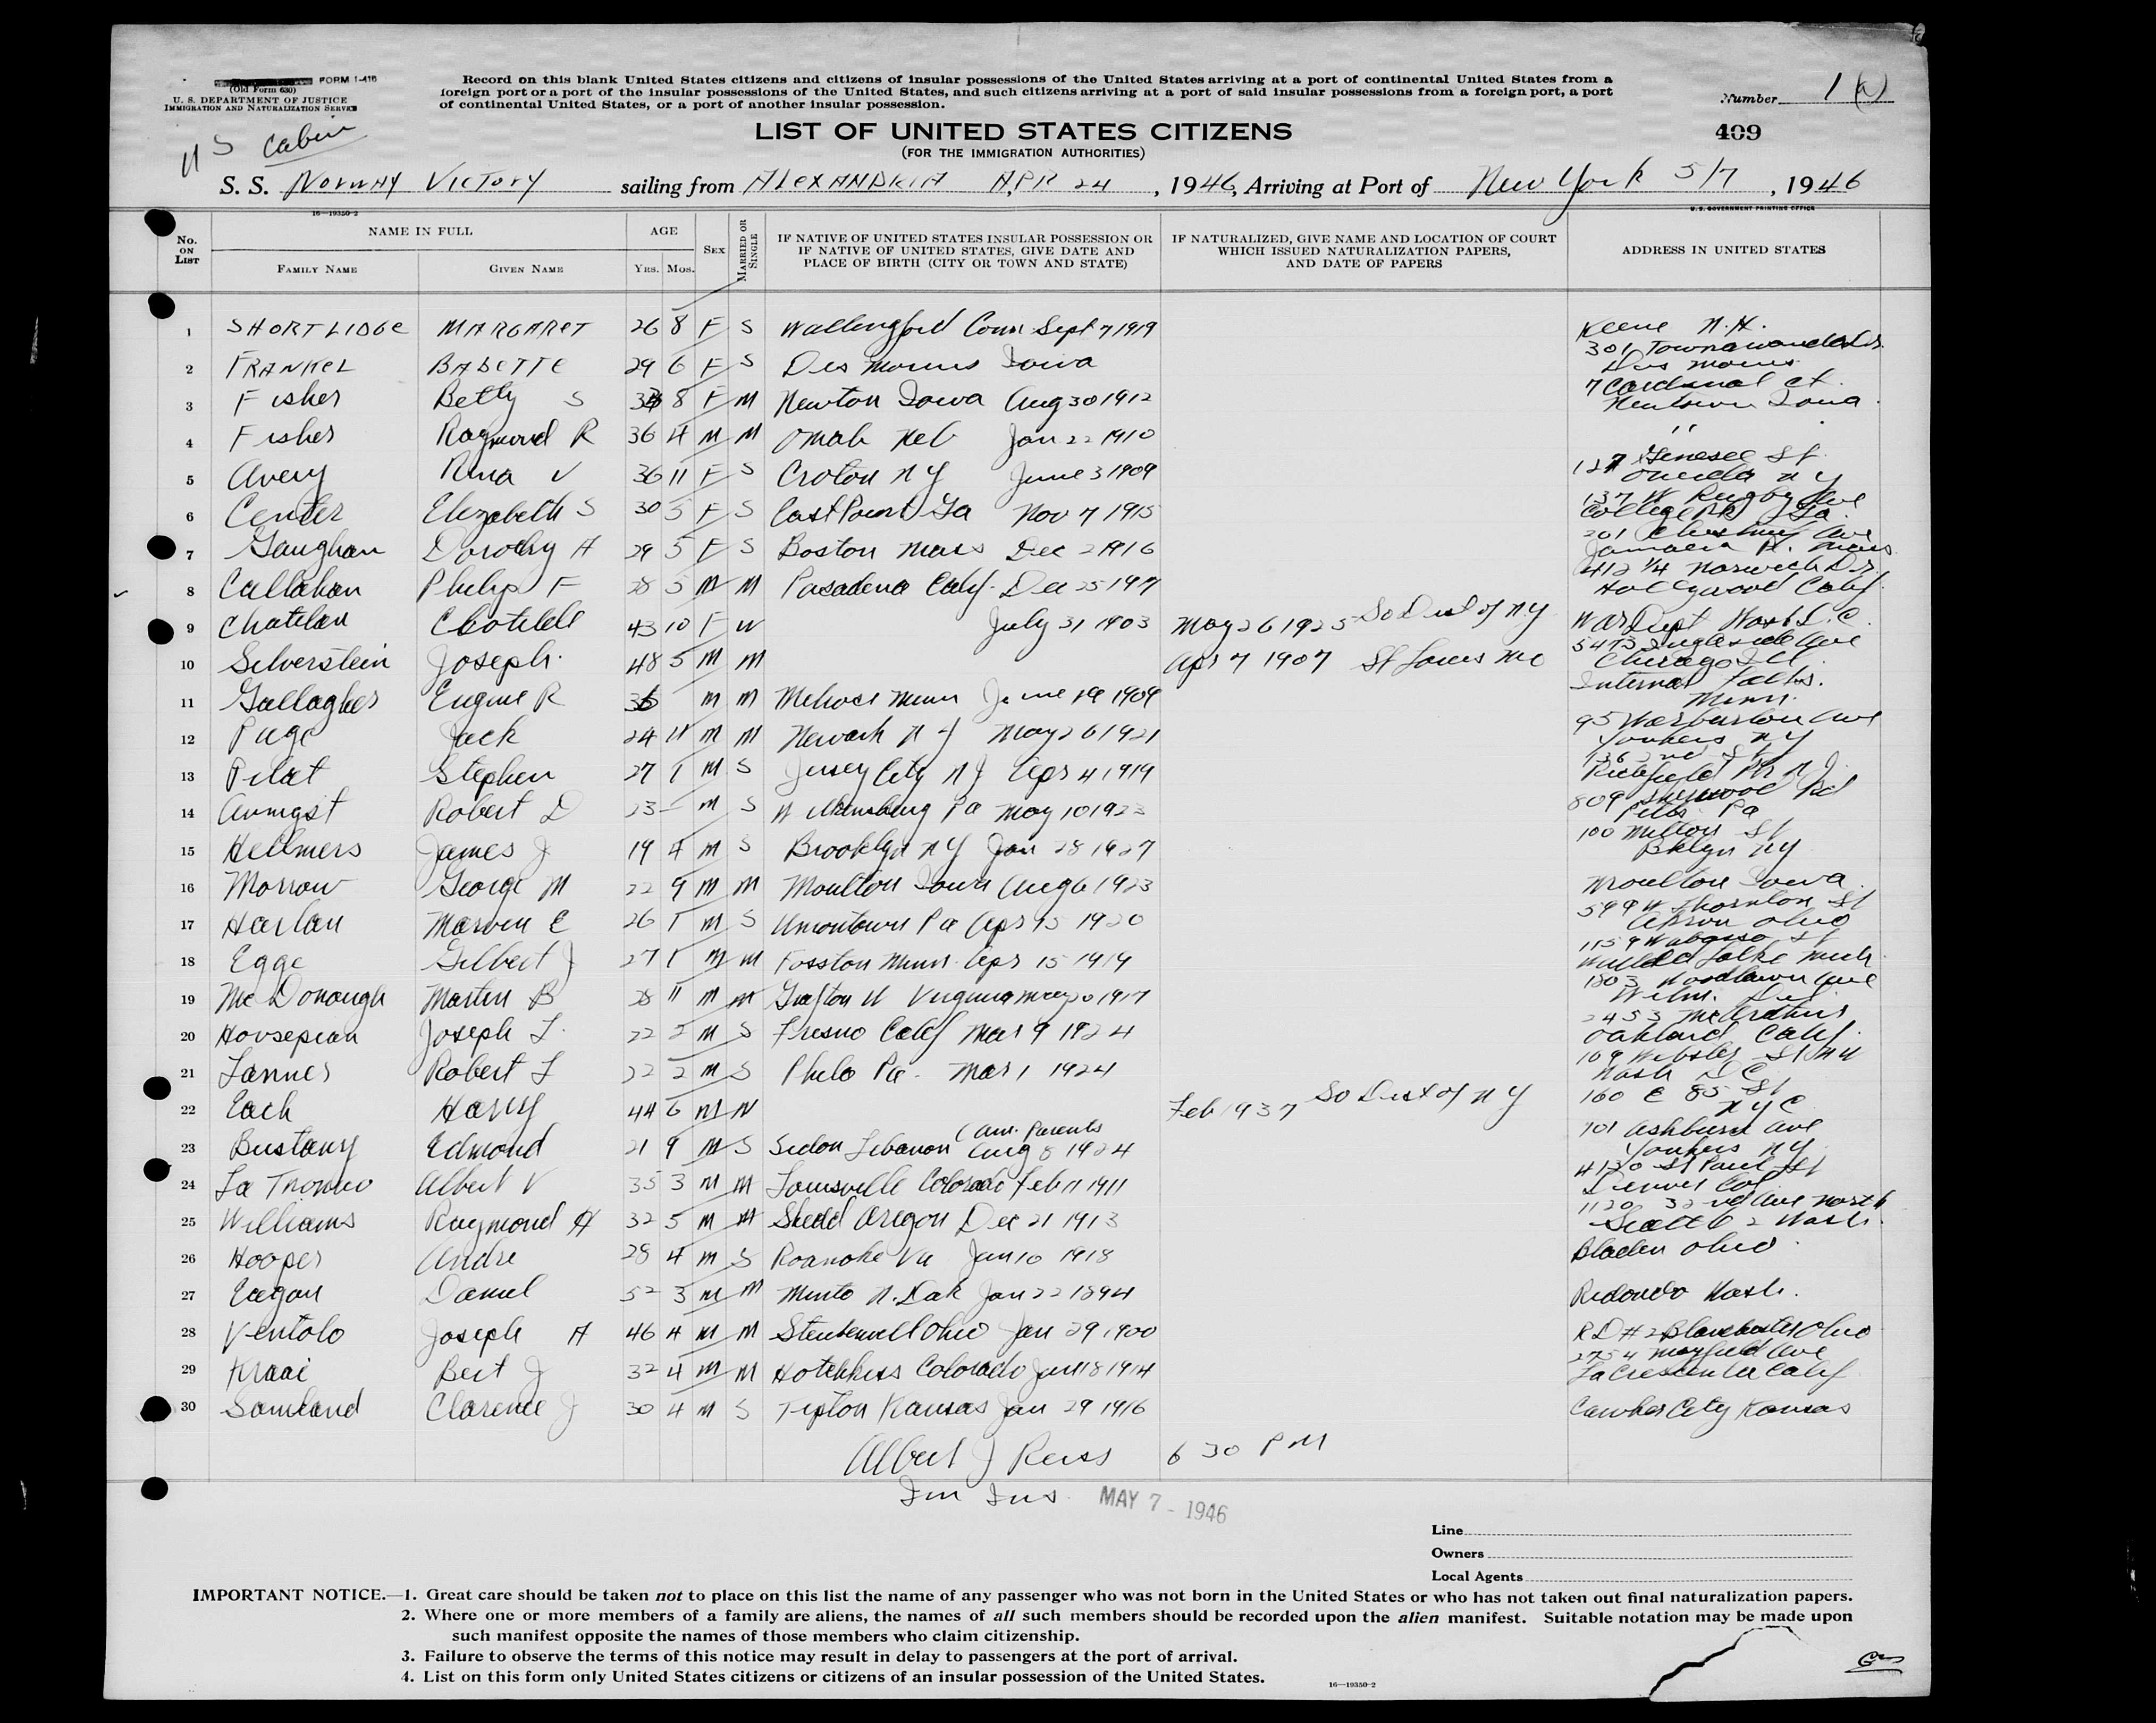 FORM I-416
(Old Form 630)
U. S. DEPARTMENT OF JUSTICE
IMMIGRATION AND NATURALIZATION SERVICE
Record on this blank United States citizens and citizens of insular possessions of the United States arriving at a port of continental United States from a
foreign port or a port of the insular possessions of the United States, and such citizens arriving at a port of said insular possessions from a foreign port, a port
of continental United States, or a port of another insular possession.
Number 1
US Cabin
LIST OF UNITED STATES CITIZENS
409
(FOR THE IMMIGRATION AUTHORITIES)
S. S. Norway Victory sailing from ALEXANDRIA APR 24, 1946, Arriving at Port of New York 5/7, 1946
16—19350-2
U. S. GOVERNMENT PRINTING OFFICE
No. ON LIST
NAME IN FULL
FAMILY NAME
GIVEN NAME
AGE
YRS.
MOS.
SEX
MARRIED OR SINGLE
IF NATIVE OF UNITED STATES INSULAR POSSESSION OR
IF NATIVE OF UNITED STATES, GIVE DATE AND
PLACE OF BIRTH (CITY OR TOWN AND STATE)
IF NATURALIZED, GIVE NAME AND LOCATION OF COURT
WHICH ISSUED NATURALIZATION PAPERS,
AND DATE OF PAPERS
ADDRESS IN UNITED STATES
1 SHORTLIDGE MARGARET 26 8 F S Wallingford Conn Sept 7 1919 Keene N.H.
2 FRANKEL BABETTE 29 6 F S Des Moines Iowa 301 Des Moines
3 Fisher Betty S 8 F M Newton Iowa Aug 30 1912 7 Cardinal Ct. Iowa
4 Fisher Raymond R 36 4 M M Omah Neb Jan 22 1910 "
5 Avery V 36 11 F S Croton N Y June 3 1909 127 Genesee St. Oneida N Y
6 Center Elizabeth S 30 5 F S East Point Ga Nov 7 1915 137 W Rugby Ave College Pk Ga
7 Gaughan Dorothy A 29 5 F S Boston Mass Dec 2 1916 201 Ave Jamaica Pl. Mass
8 Callahan Philip F 28 5 M M Pasadena Calif. Dec 25 1917 412 1/4 Norwich Dr. Hollywood Calif
9 43 10 F W July 31 1903 May 26 1925 So Dist of N.Y War Dept Wash D.C.
10 Silverstein Joseph 48 5 M M Apr 7 1907 St Louis Mo 5473 Ingleside Ave Chicago Ill
11 Gallagher Eugene R M M Melrose Minn June 19 1909 Internat Falls. Minn.
12 Page Jack 24 11 M M Newark N J May 26 1921 95 Warburton Ave Yonkers N Y
13 Pilat Stephen 27 1 M S Jersey City N J Apr 4 1919 136 2nd St Ridgefield Pk N J
14 Robert D 23 - M S Pa May 10 1923 809 Sherwood Rd Pitts. Pa
15 Hellmers James J 19 4 M S Brooklyn N Y Jan 28 1927 100 Milton St Bklyn NY
16 Morrow George M 22 9 M M Moulton Iowa Aug 6 1923 Moulton Iowa
17 Harlan Marvin E 26 1 M S Uniontown Pa Apr 15 1920 599 W Thornton St Akron Ohio
18 Egge Gilbert J 27 1 M M Fosston Minn Apr 15 1919 Mich
19 McDonough Martin B 28 11 M M Grafton W Virginia May 20 1917 1803 Woodlawn Ave Wilm. Del
20 Hovsepian Joseph 22 2 M S Fresno Calif Mar 9 1924 2453 McArthur Oakland Calif.
21 Robert 22 2 M S Phila Pa. Mar 1 1924 109 Webster St NW Wash D C
22 Harry 44 6 M Feb 1937 So Dist of N Y 160 E 85 St N Y C
23 Bustany Edmond 21 9 M S Sidon Lebanon (Am. Parents Aug 8 1924 701 Ashburn Ave Yonkers N Y
24 Albert V 35 3 M M Louisville Colorado Feb 11 1911 4130 St Paul St Denver Col
25 Williams Raymond H 32 5 M M Shedd Oregon Dec 21 1913 1120 32nd Ave North Seattle 2 Wash.
26 Hooper Andre 28 4 M S Roanoke Va Jan 10 1918 Bladen Ohio
27 Eagan Daniel 52 3 M M Minto N. Dak Jan 22 1894 Redondo Wash.
28 Ventolo Joseph A 46 4 M M Steubenvell Ohio Jan 29 1900 R D # 2 Ohio
29 Kraai Bert J 32 4 M M Hotchkiss Colorado Jan 18 1914 2754 Mayfield Ave La Crescenta Calif
30 Clarence J 30 4 M S Tipton Kansas Jan 29 1916 Cawker City Kansas
Albert J Reiss 6 30 PM
Im Ins. MAY 7 - 1946
Line
Owners
Local Agents
IMPORTANT NOTICE.—1. Great care should be taken not to place on this list the name of any passenger who was not born in the United States or who has not taken out final naturalization papers.
2. Where one or more members of a family are aliens, the names of all such members should be recorded upon the alien manifest. Suitable notation may be made upon
such manifest opposite the names of those members who claim citizenship.
3. Failure to observe the terms of this notice may result in delay to passengers at the port of arrival.
4. List on this form only United States citizens or citizens of an insular possession of the United States.
16—19350-2